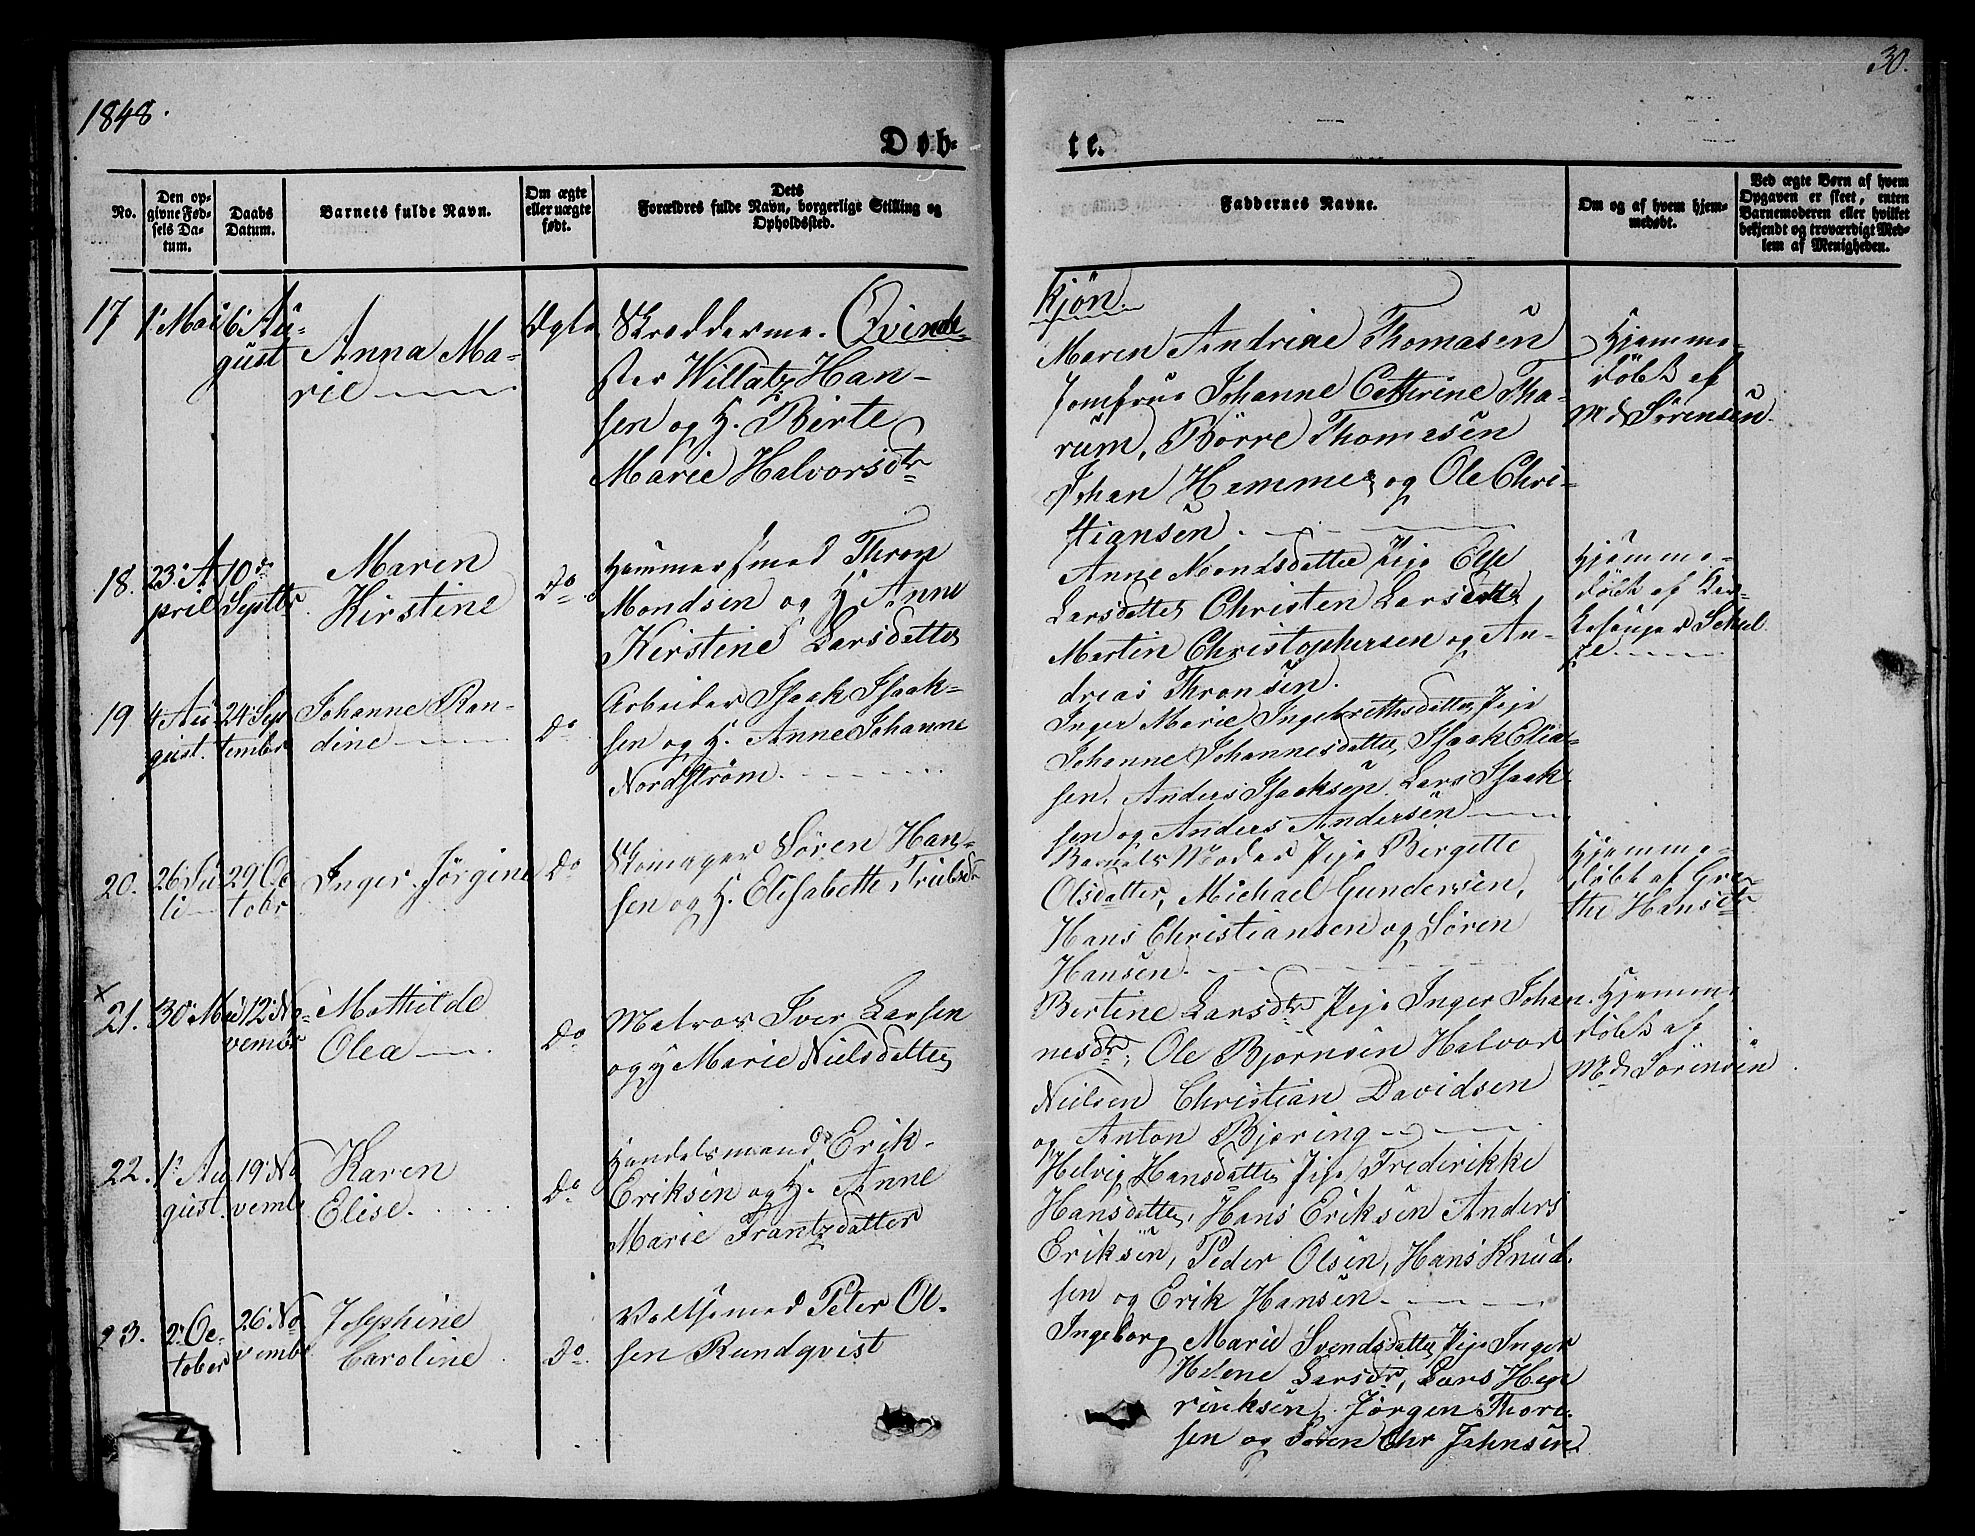 1848.
30.
Døb-
te.
No.
Den op-
givne Fød-
sels Da-
tum.
Daabs
Datum.
Barnets fulde Navn.
Om ægte
eller uægte
født.
Dets
Forældres fulde Navn, borgerlige Stilling og
Opholdssted.
Faddernes Navne.
Om og af hvem hjem-
medøbt.
Ved ægte Børn af hvem
Opgaven er skeet, enten
Barnemoderen eller hvilket
bekjendt og troværdigt Med-
lem af Menigheden.
Qvinde
kjøn.
17
1 Mai
6 Au-
gust
Anna Ma-
rie
Ægte
Skræddermester Willatz Han-
sen og H. Birte
Marie Halvorsdtr
Maren Andrine Thomasen
Jomfrue Johanne Cathrine Tha-
rum, Börre Thomesen
Johan Hammer og Ole Chri-
stiansen.
Hjemme-
döbt af
Md Sörensen
18.
23 A
pril
10de
Septbr
Maren
Kirstine
Do
Hammersmed Thron
Mondsen og H. Anne
Kirstine Larsdatter
Anne Mondsdatter Pige Else
Larsdatter Christen Larsen
Martin Christophersen og An-
dreas Thronsen.
Hjemme-
döbt af
19
4 Au
gust.
24 Sep
tember
Johanne Ran-
dine
Do
Arbeider Isaak Isaak-
sen og H. Anne Johanne
Nordström.
Inger Marie Ingebrethsdatter, Pige
Johanne Johannesdatter, Isaak Elia-
sen, Anders Isaaksen, Lars Isaak-
sen og Anders Andersen
20.
26 Ju
li
29 Oc
tobr
Inger Jörgine
Do
Skomager Sören Han-
sen og H. Elisabeth Trulsdtr
Barnets Moder Pige Birgitte
Olsdatter, Michael Gundersen,
Hans Christiansen og Sören
Hansen.
Hjemme-
döbt af Gre-
the Hansdtr
21.
30 Mai
12 No-
vembr
Mathilde
Olea
Do
Matros Iver Larsen
og H. Marie Nielsdatter
Bertine Larsdtr Pige Inger Johan-
nesdtr, Ole Bjørnsen Halvor
Nielsen Christian Davidsen
og Anton Bjering
Hjemme-
döbt af
Md Sörensen
22.
1 Au
gust.
19 No
vembr
Karen
Elise.
Do
Handelsmand Erik
Eriksen og H. Anne
Marie Frantzdatter
Helvig Hansdatter Pige Frederikke
Hansdatter, Hans Eriksen Anders
Eriksen, Peder Olsen, Hans Knud-
sen og Erik Hansen.
23.
2 Oc-
tober
26 No
vembr
Josephine
Caroline
Do
Valsemed Peter Ol-
sen Rundqvist
Ingeborg Marie Svendsdatter, Pige Inger
Helene Larsdtr, Lars Hen
riksen, Jörgen Thore-
sen og Sören Chr Jahnsen